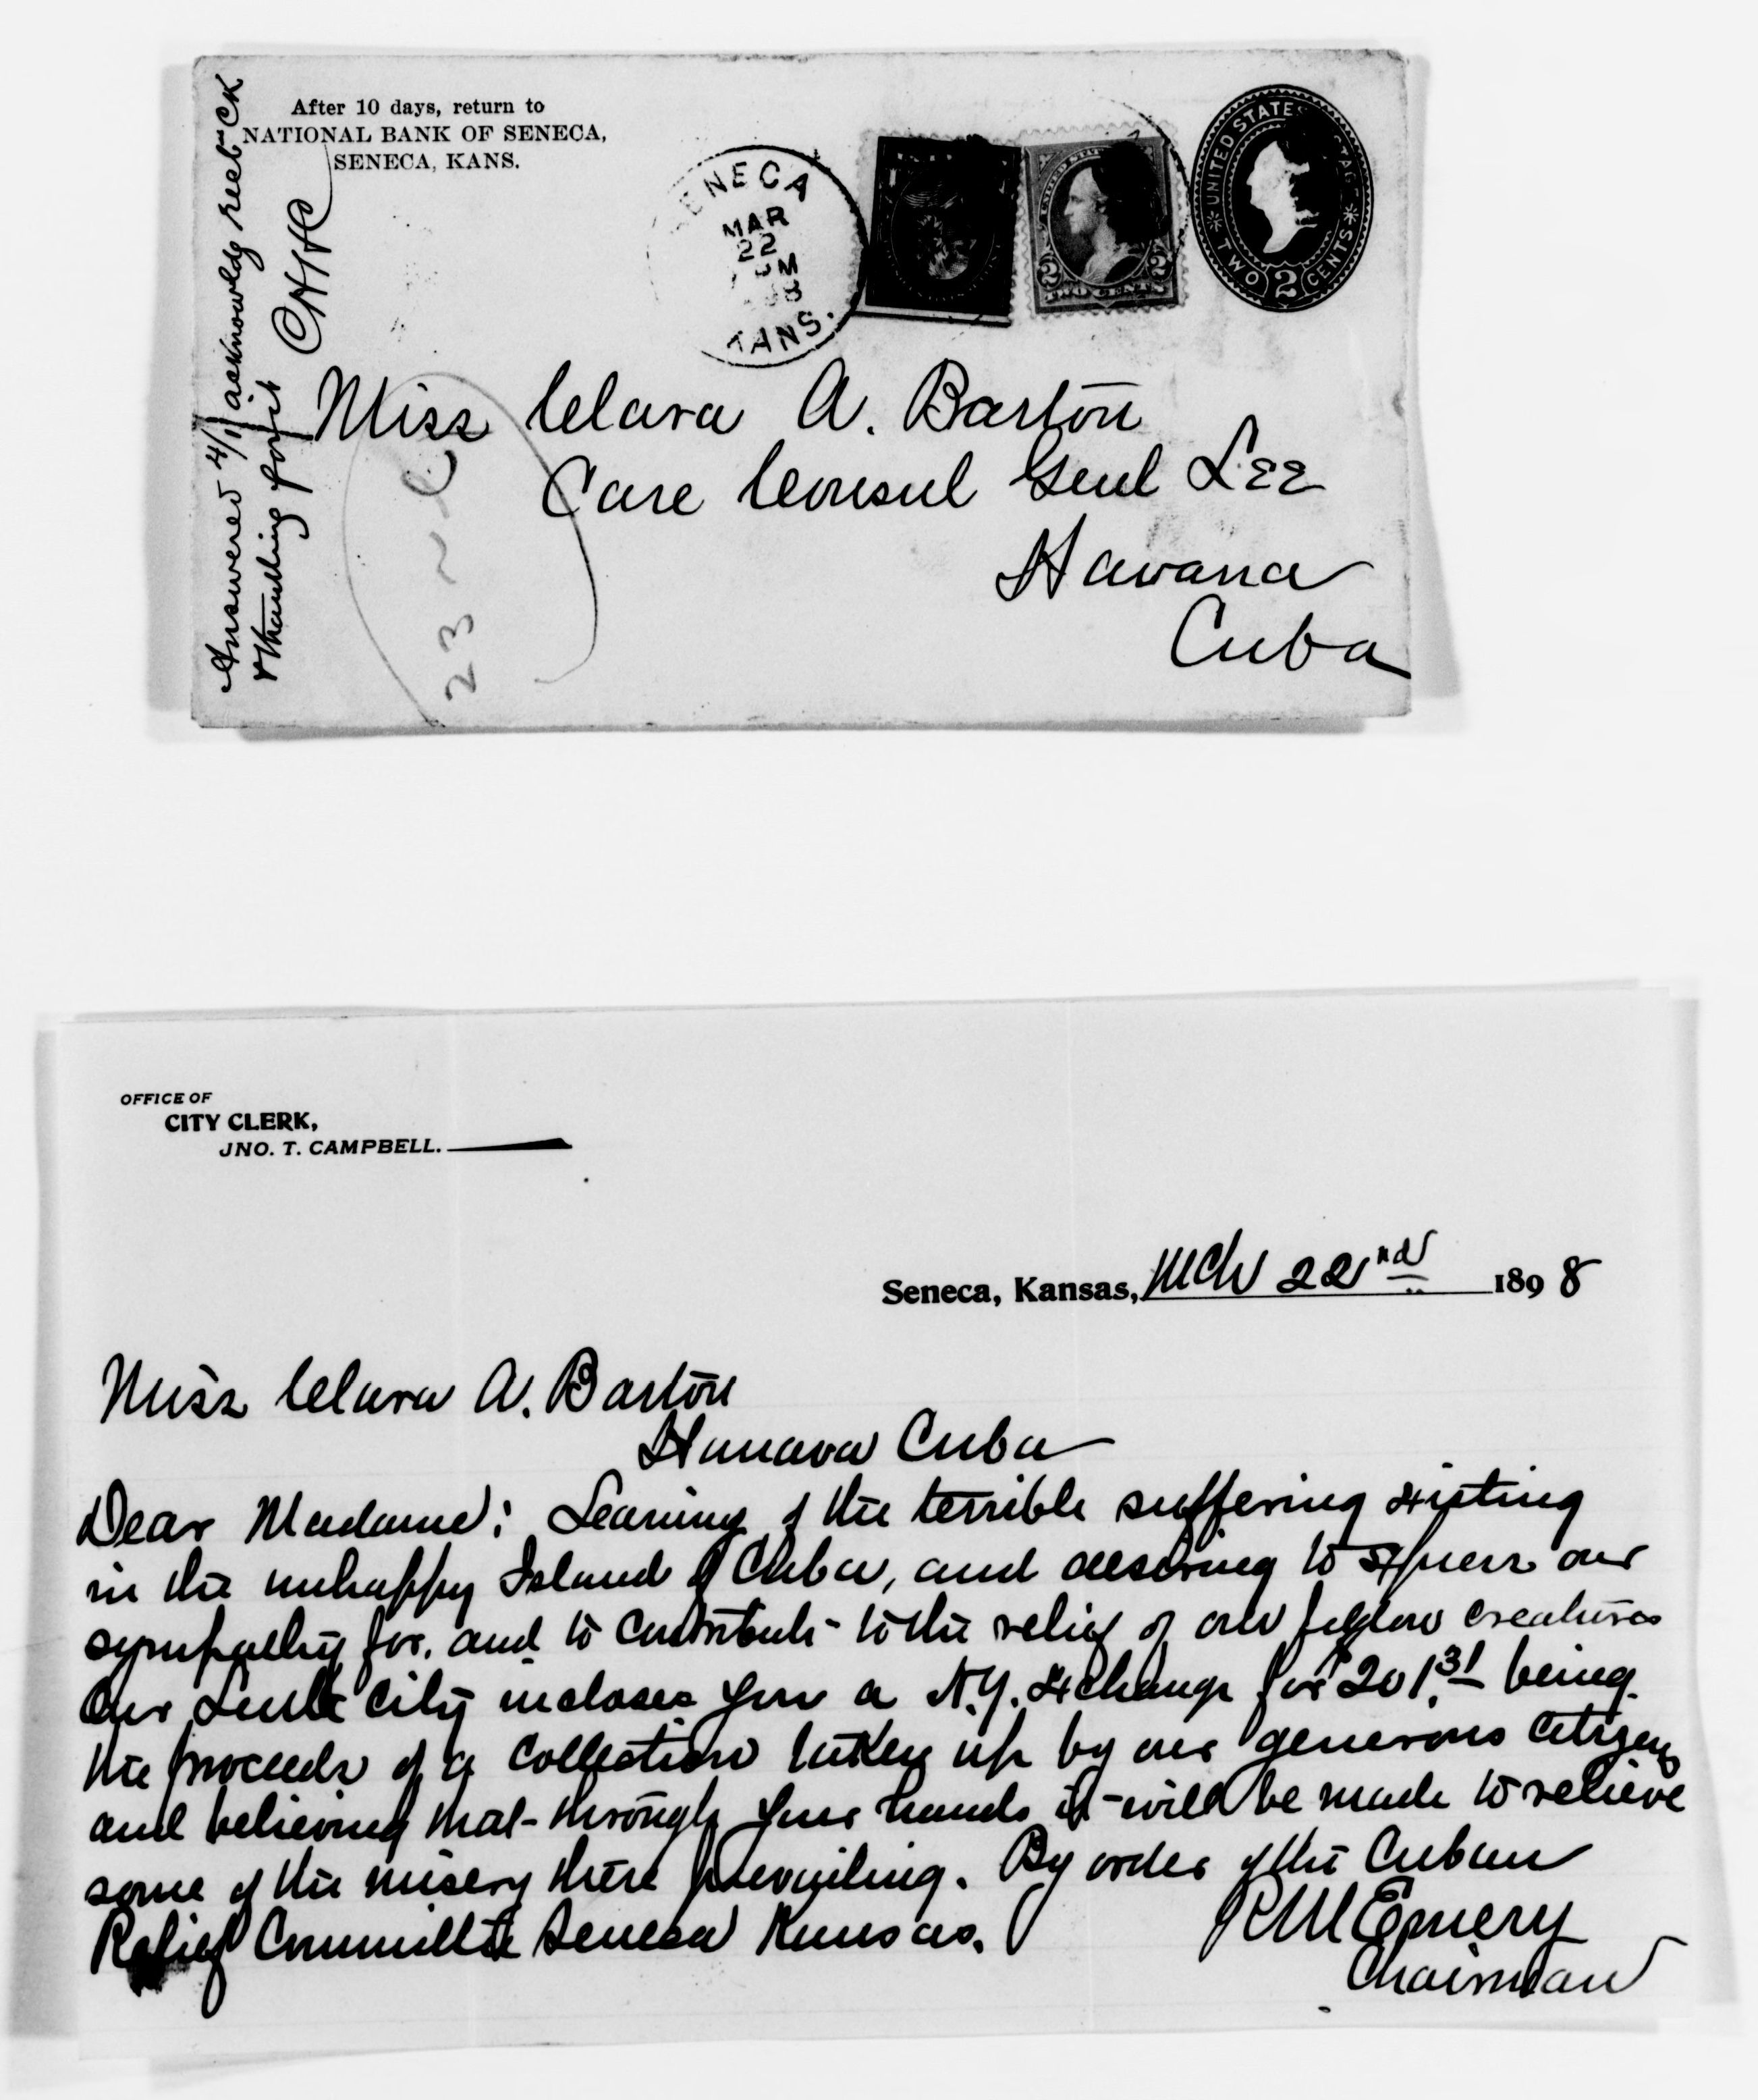 After 10 days, return to
NATIONAL BANK OF SENECA,
SENECA, KANS.
Answered 4/11 acknowldg recb CK
& thanking for it CHHC
SENECA
MAR
22
PM
98
KANS.
TWO CENTS
2 2
UNITED STATES
TWO 2 CENTS
Miss Clara A. Barton
Care Consul Genl Lee
Havana
Cuba
OFFICE OF
CITY CLERK,
JNO. T. CAMPBELL.
Seneca, Kansas, Mch 22nd 1898
Miss Clara A. Barton
Hanava Cuba
Dear Madame: Learning of the terrible suffering existing
in the unhappy Island of Cuba, and desiring to express our
sympathy for, and to contribute to the relief of our fellow creatures
Our Little City incloses you a N.Y. Exchange for $201.31 being
the proceeds of a collection taken up by our generous citizens
and believing that through your hands it will be made to relieve
some of the misery there prevailing. By order of the Cuban
Relief Committee Seneca Kansas.
R M Emery
Chairman